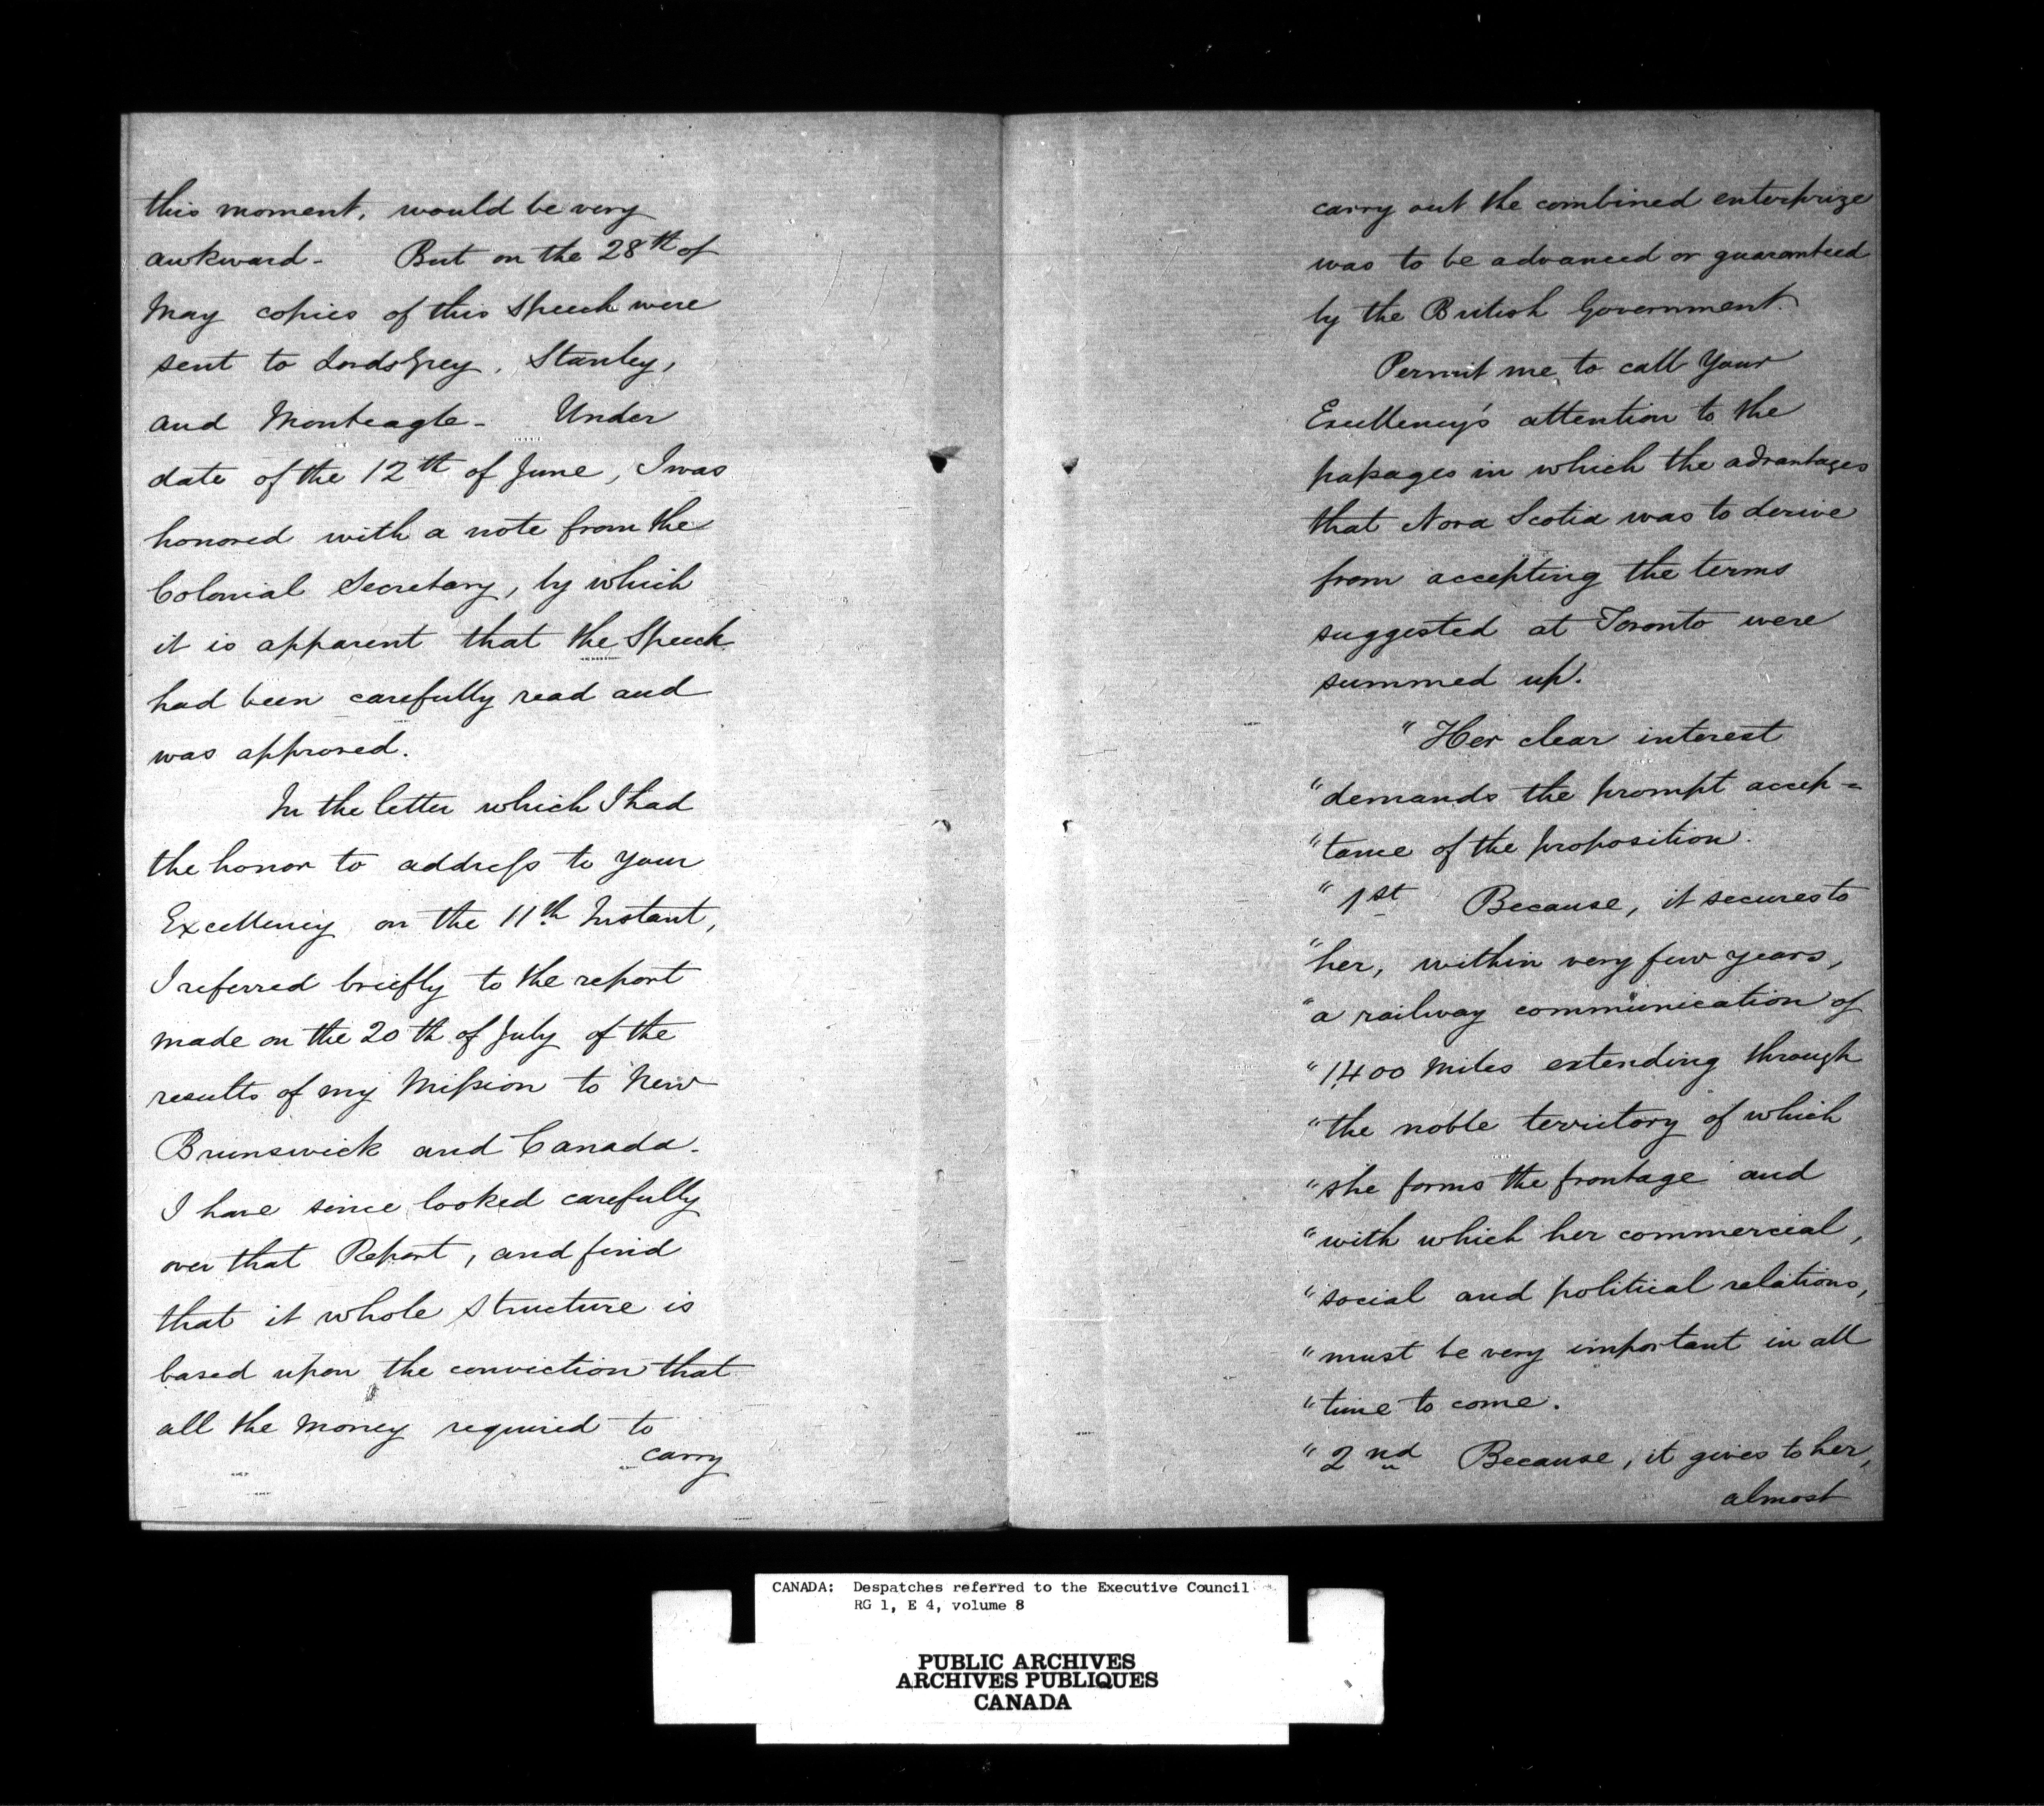 this moment, would be very
awkward - But on the 28th of
May copies of this Speech were
sent to Lords Grey, Stanley,
and Monteagle - Under
date of the 12th of June, I was
honored with a note from the
Colonial Secretary, by which
it is apparent that the Speech
had been carefully read and
was approved.
In the letter which I had
the honor to address to Your
Excellency on the 11th Instant,
I referred briefly to the report
made on the 20th of July of the
results of my Mission to New
Brunswick and Canada -
I have since looked carefully
over that Report, and find
that it whole structure is
based upon the conviction that
all the money required to
carry
carry out the combined enterprize
was to be advanced or guaranteed
by the British Government.
Permit me to call Your
Excellency's attention to the
passages in which the advantages
that Nova Scotia was to derive
from accepting the terms
suggested at Toronto were
summed up.
"Her clear interest
"demands the prompt accep=
"tance of the proposition.
"1st Because, it secures to
"her, within very few years,
"a railway communication of
"1400 Miles extending through
"the noble territory of which
"she forms the frontage and
"with which her commercial,
"social and political relations,
"must be very important in all
"time to come.
"2nd Because, it gives to her,
almost
CANADA: Despatches referred to the Executive Council
RG 1, E 4, volume 8
PUBLIC ARCHIVES
ARCHIVES PUBLIQUES
CANADA